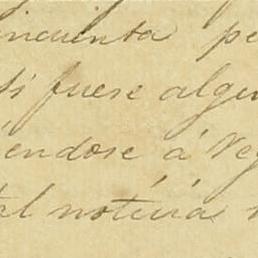 incuenta pe
si fuere algu
iéndose á Ve
tal noticia